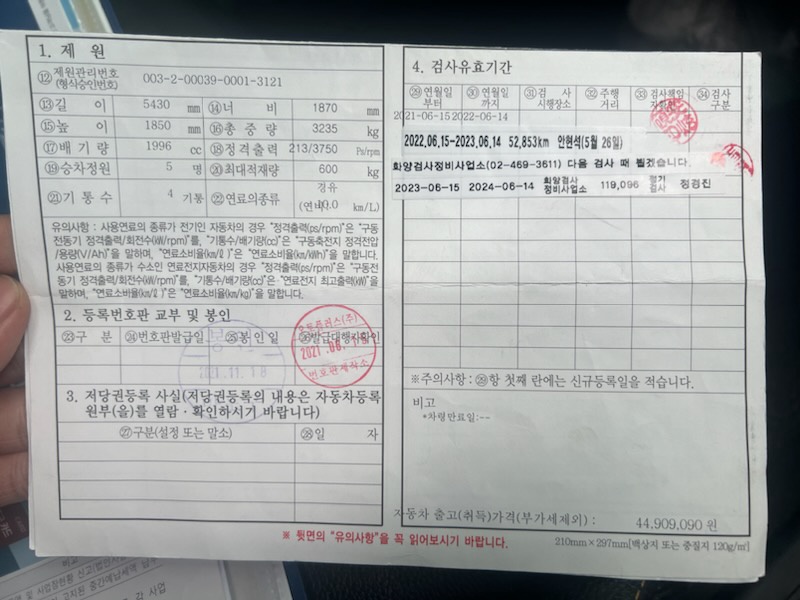 1. 제 원
⑫ 제원관리번호 (형식승인번호) 003-2-00039-0001-3121
⑬ 길 이 5430 mm ⑭ 너 비 1870 mm
⑮ 높 이 1850 mm ⑯ 총 중 량 3235 kg
⑰ 배 기 량 1996 cc ⑱ 정격출력 213/3750 Ps/rpm
⑲ 승차정원 5 명 ⑳ 최대적재량 600 kg
㉑ 기 통 수 4 기통 ㉒ 연료의종류 경유 (연비 10.0 km/L)
유의사항 : 사용연료의 종류가 전기인 자동차의 경우 "정격출력(ps/rpm)"은 "구동
전동기 정격출력/회전수(kW/rpm)"를, "기통수/배기량(cc)"은 "구동축전지 정격전압
/용량(V/Ah)"을 말하며, "연료소비율(km/ℓ)"은 "연료소비율(km/kWh)"을 말합니다.
사용연료의 종류가 수소인 연료전지자동차의 경우 "정격출력(ps/rpm)"은 "구동전
동기 정격출력/회전수(kW/rpm)"를, "기통수/배기량(cc)"은 "연료전지 최고출력(kW)"을
말하며, "연료소비율(km/ℓ)"은 "연료소비율(km/kg)"을 말합니다.
2. 등록번호판 교부 및 봉인
㉓ 구 분 ㉔ 번호판발급일 ㉕ 봉인일 ㉖ 발급대행자확인
2021.11.18
오토플러스(주)
2021.06.
번호판제작소
3. 저당권등록 사실(저당권등록의 내용은 자동차등록
원부(을)를 열람 · 확인하시기 바랍니다)
㉗ 구분(설정 또는 말소) ㉘ 일 자
4. 검사유효기간
㉙ 연월일 부터 ㉚ 연월일 까지 ㉛ 검 사 시행장소 ㉜ 주행 거리 ㉝ 검사책임 자확인 ㉞ 검사 구분
2021-06-15 2022-06-14
2022,06,15-2023,06,14 52,853km 안현석(5월 26일)
화양검사정비사업소(02-469-3611) 다음 검사 때 뵙겠습니다.
2023-06-15 2024-06-14 화양검사 정비사업소 119,096 정기 검사 정경진
※주의사항 : ㉙항 첫째 란에는 신규등록일을 적습니다.
비고
*차령만료일:--
자동차 출고(취득)가격(부가세제외) : 44,909,090 원
※ 뒷면의 "유의사항"을 꼭 읽어보시기 바랍니다.
210mm×297mm[백상지 또는 중질지 120g/㎡]
각 사업